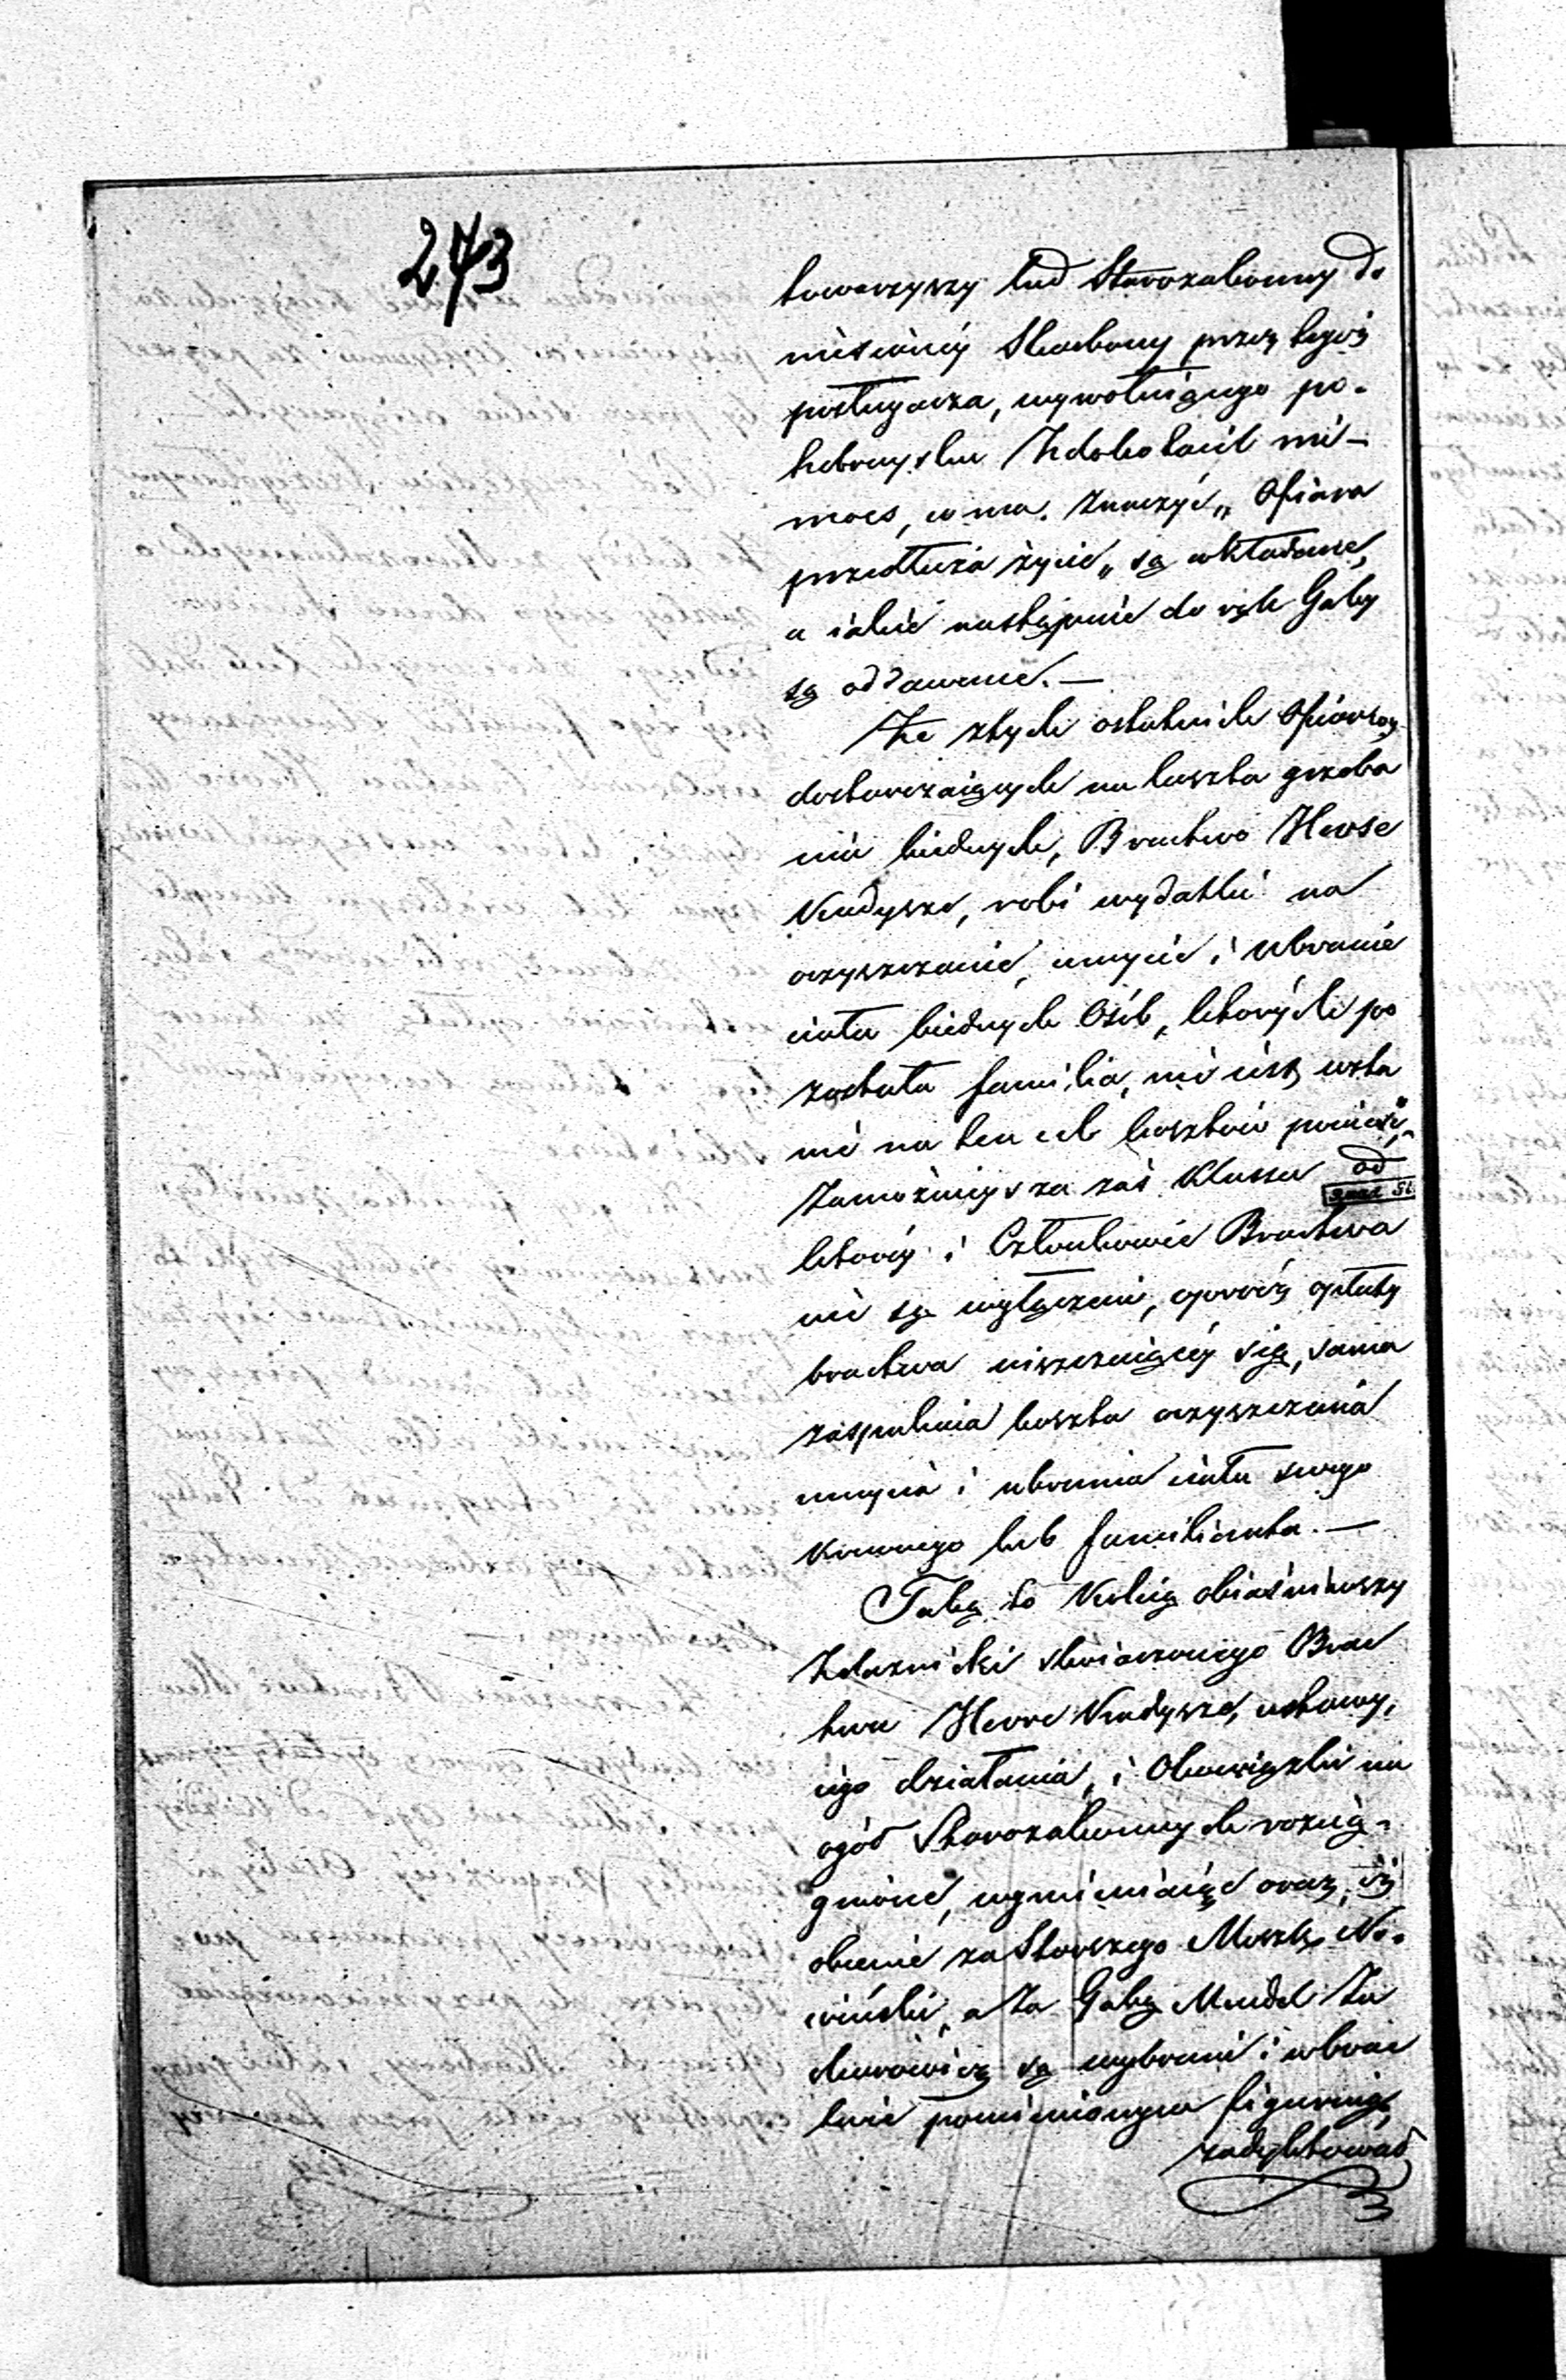 273
towarzyszy lud Starozakonny do
niesionéy Skarbony przez tegoż
posługacza, wywołuiącego po
hebraysku Zdoko tacil mi-
mows, co ma znaczyć „Ofiara
przedłuża życie„ są wkładane,
a iakie następnie do rąk Gaby
są oddawane.—
Że z tych ostatnich Ofiar
dostarczaiących na koszta grzeba
nia biednych, Bractwo Hewse
Kadysze, robi wydatki na
oczyszczenie, umycie i ubranie
ciała biednych Osób, których po
została familia, nie iest wsta
nie na ten cel kosztów ponieść,
Zamożnieysza zaś Klassa od
któréy i Członkowie Bractwa
nie są wyłączeni, oprócz opłaty
bractwa uiszczaiącéy się, sama
zaspakaia koszta oczyszczenia
umycia i ubrania ciała swego
Krewnego lub familianta.—
Taką to Kolią obiaśniwszy
Zdaznicki skwiarzonego Brac
twa Hewre Kadysze, ustawy,
iego działania, i Obowiązki na
ogół Starozakonnych rozcią-
gnione, wymieniaiąc oraz, iż
obecnie za Starszego Moszk No-
wiński, a za Gabę Mendel Za
charowicz są wybrani i w brac
twie pomienionym figuruią,
zadyktował